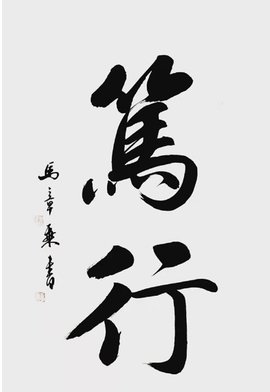 篤行
馬章乘書